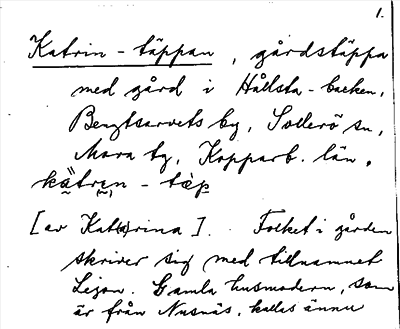 1.
Katrin-täppan, gårdstäppa
med gård i Hållsta-backen,
Bengtsarvets by, Sollerö sn,
Mora tg, Kopparb. län.
kätren - täp
[av Kat(a)rina]. Folket i gården
skriver sig med tillnamnet
Lejon. Gamla husmodern, som
är från Nusnäs, kallas ännu